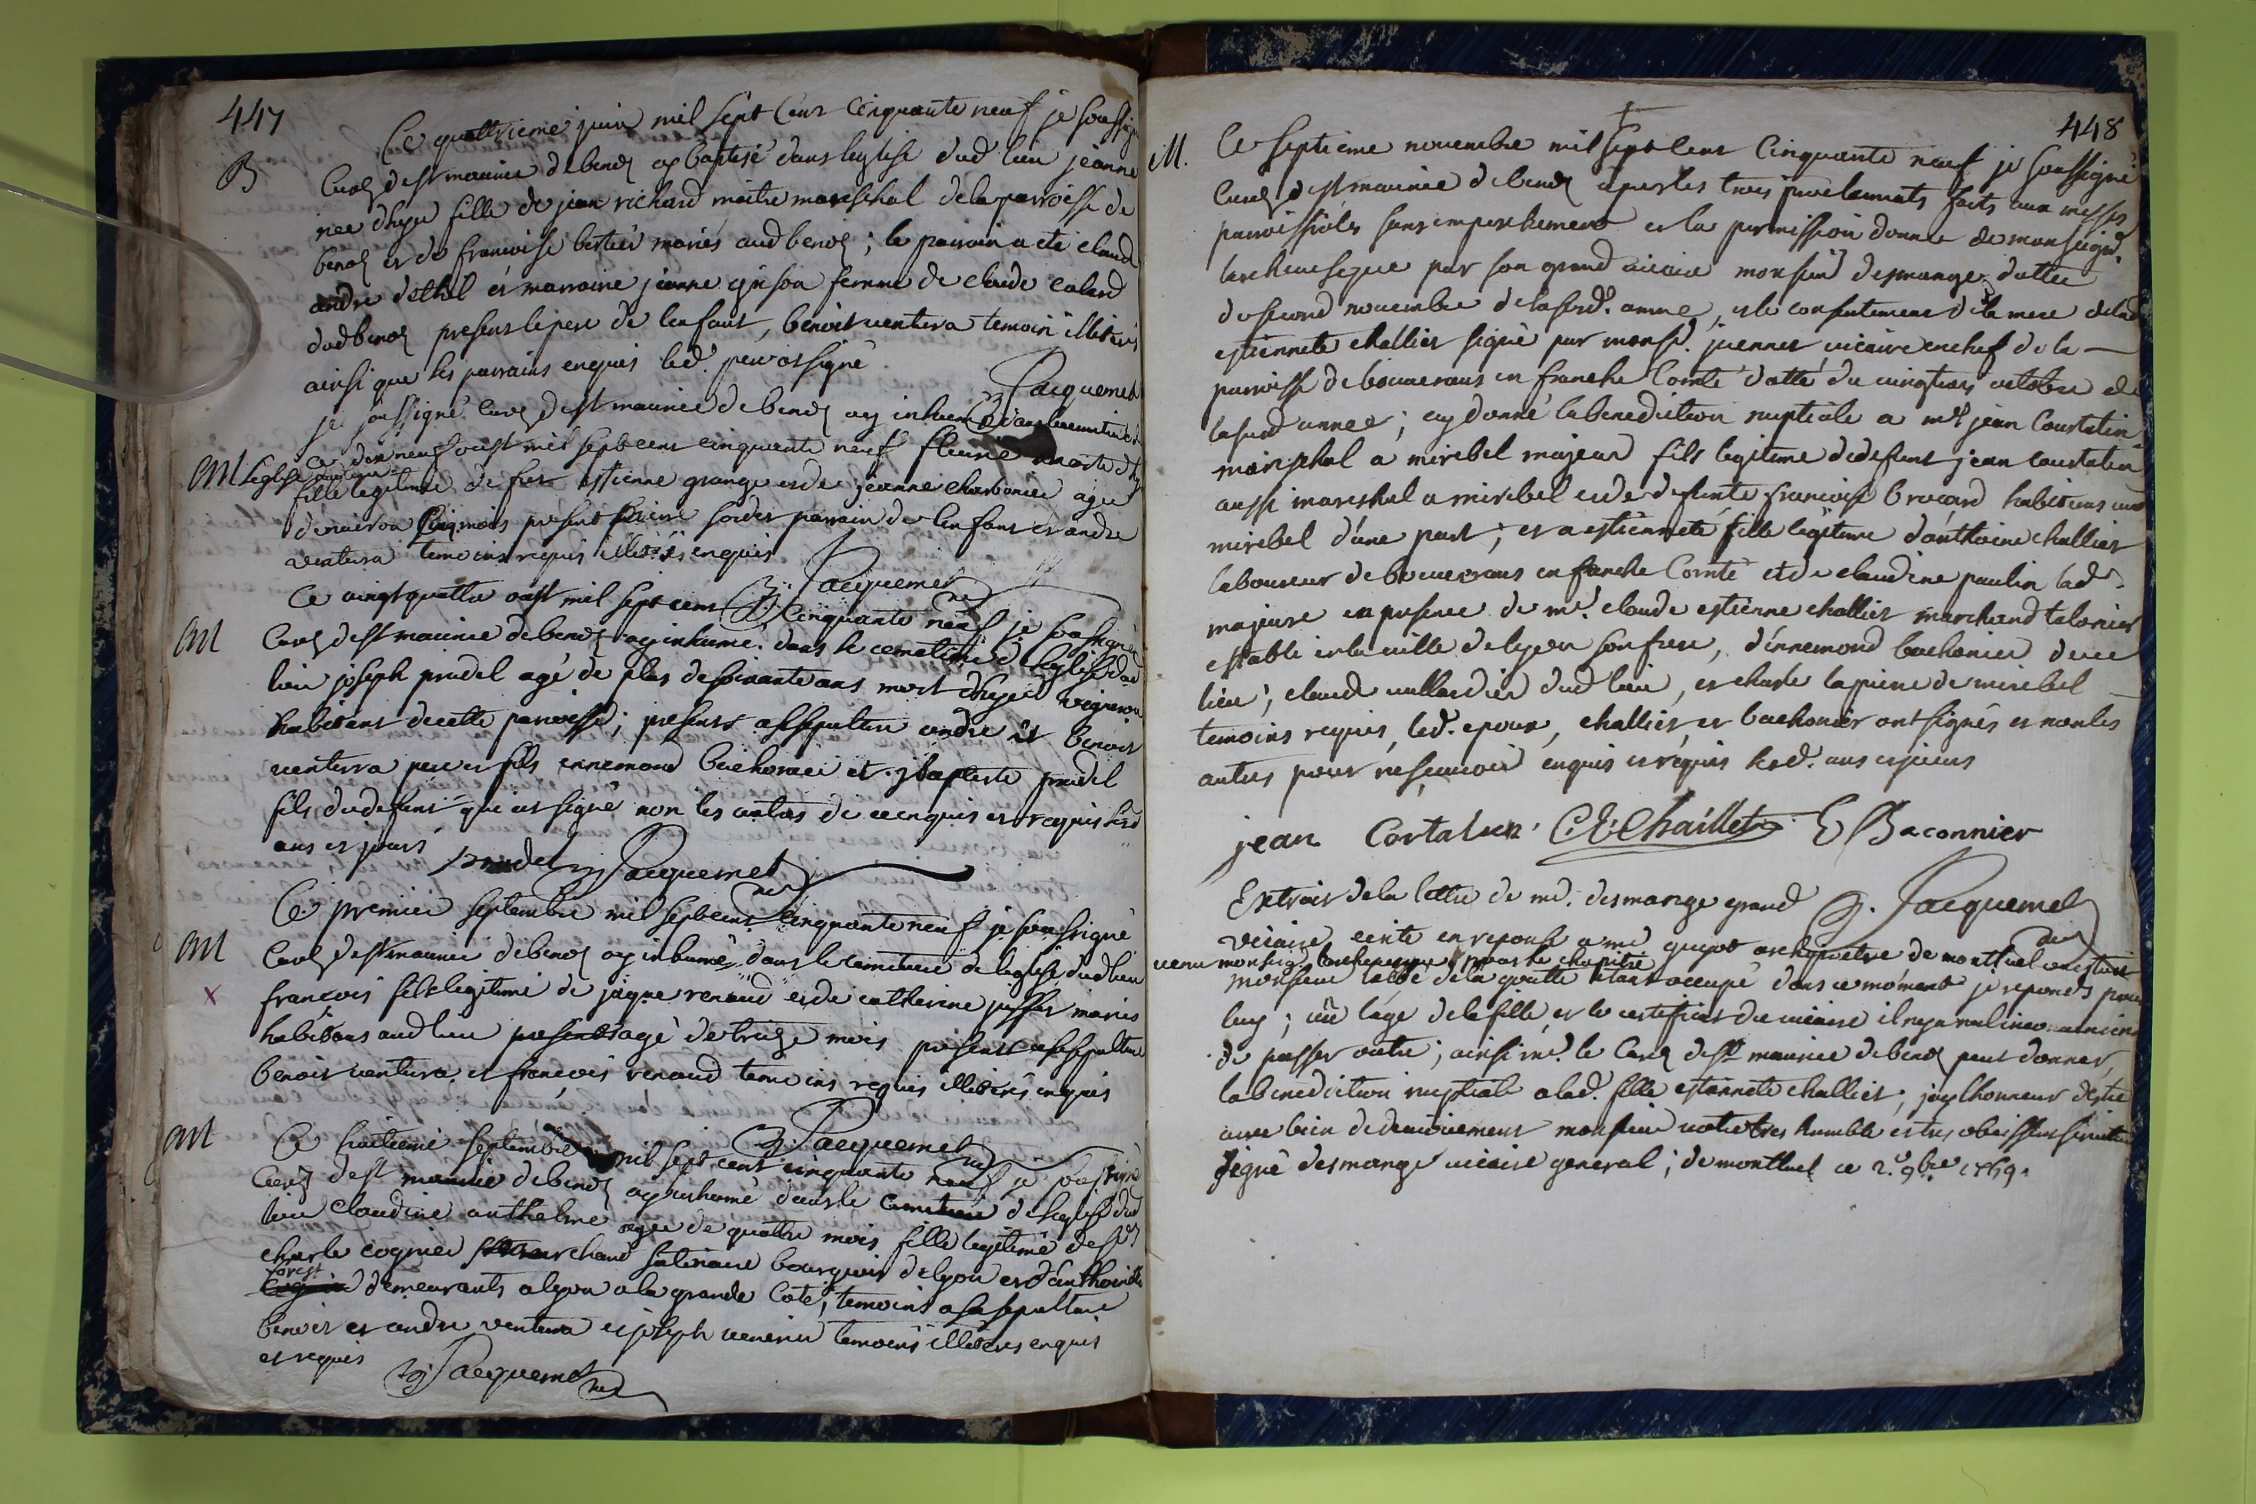 447
B
Ce quattrieme juin mil sept cent cinquante neuf je soussigné
Curé de st maurice de benos ay baptisé dans leglise dud lieu jeanne
née dhyer fille de jean richard maitre mareschal de la parroisse de
benos et de francoise bertier mariés aud benos ; le parrain a eté claude
andre dethel et marraine jeanne femme de claude calard
dud benos present le pere de lenfant, benoit ventura temoin illiterés
ainsi que les parrains enquis led. pere a signé
Jacquemet
je soussigné curé de st maurice de benos ay inhumé dans le cemetiere de
Mt
leglise
ce dix neuf oust mil sept cent cinquante neuf fleurie morte
fille legitime de feu estienne grange et de jeanne charbonier agée
denviron mois present parrain de lenfant et andre
ventura temoins requis illiterés enquis
Jacquemet
Mt
Ce vingt quattre oust mil sept cent cinquante neuf je soussigné
Curé de st maurice de benos ay inhumé dans le cemetiere de leglise dud
lieu joseph pradel agé de plus de soixante ans mort dhyer vigneron
habitant de cette parroisse ; presents a sa sepulture andre et benoit
venturra pere et fils ennemond bachonier et jbaptiste pradel
fils dud defunt qui at signé non les autres de ce enquis et requis lesd
ans et jours
Pradel Jacquemet
Mt
Ce premier septembre mil sept cent cinquante neuf je soussigné
Curé de st maurice de benos ay inhumé dans le cemetiere de leglise dud lieu
x
françois fils legitime de jaque renaud et de catherine mariés
habitans aud lieu agé de treize mois presents a sa sepulture
benoit ventura et françois renaud temoins requis illiterés enquis
Jacquemet
Mt
Ce huitieme septembre mil sept cent cinquante neuf je soussigné
Curé de st maurice de benos ay inhumé dans le cemetiere de leglise dud
lieu claudine anthelme agée de quattre mois fille legitime de sr
charle cognier marchand bourgeois de lyon et danthoinette
forest
demeurants a lyon a la grande Coté ; temoins a sa sepulture
benoit et andre ventura et joseph temoins illiterés enquis
et requis
Jacquemet
448
M.
Ce septieme novembre mil sept cent cinquante neuf je soussigné
Curé de st maurice de benos apres les trois proclamats faits aux messes
parroissiales sans empeschement et la permission donnée de monseigr.
larchevesque par son grand vicaire monsieur desmange dattée
du second novembre de la susd. année, et le consentement de la mere de lad
estiennete challier signé par monsr. juennet vicaire en chef de la
parroisse de bouverans en franche Comté datté du vingt octobre de
la susd année ; ay donné la benediction nuptiale a mr jean Courtatin
mareschal a mirebel majeur fils legitime de defunt jean courtatin
aussi mareschal a mirebel et de defunte francoise brocard habitans aud
mirebel d'une part ; et a estiennete fille legitime d'anthoine challier
laboureur de bouverans en franche Comté et de claudine paulin lad.
majeure en presence de mr. claude estienne challier marchand
establi en la ville de lyon son frere, d'ennemond bachonier de ce
lieu ; claude dud lieu, et charle lapierre de mirebel
temoins requis, led. epoux, challier, et bachonier ont signés et non les
autres pour ne sçavoir enquis et requis lesd. ans et jours
jean Cortaluin CE Chaillet E Baconnier
Jacquemet
Extrait de la lettre de mr. desmange grand
vicaire ecrite en reponse a mr guyot archipretre de montluel
monsieur labbé de la goutte etant occupé dans ce moment je reponds pour
luy ; vû lage de la fille et le certificat du vicaire il ny a nul inconvenient
de passer outre ; ainsi mr. le Curé de st maurice de benos peut donner
la benediction nuptiale a lad. fille estiennete challier ; jay lhonneur destre
avec bien du devouement monsieur votre tres humble et tres obeissant serviteur
signé desmange vicaire general ; de montluel ce 2e 9bre 1759.